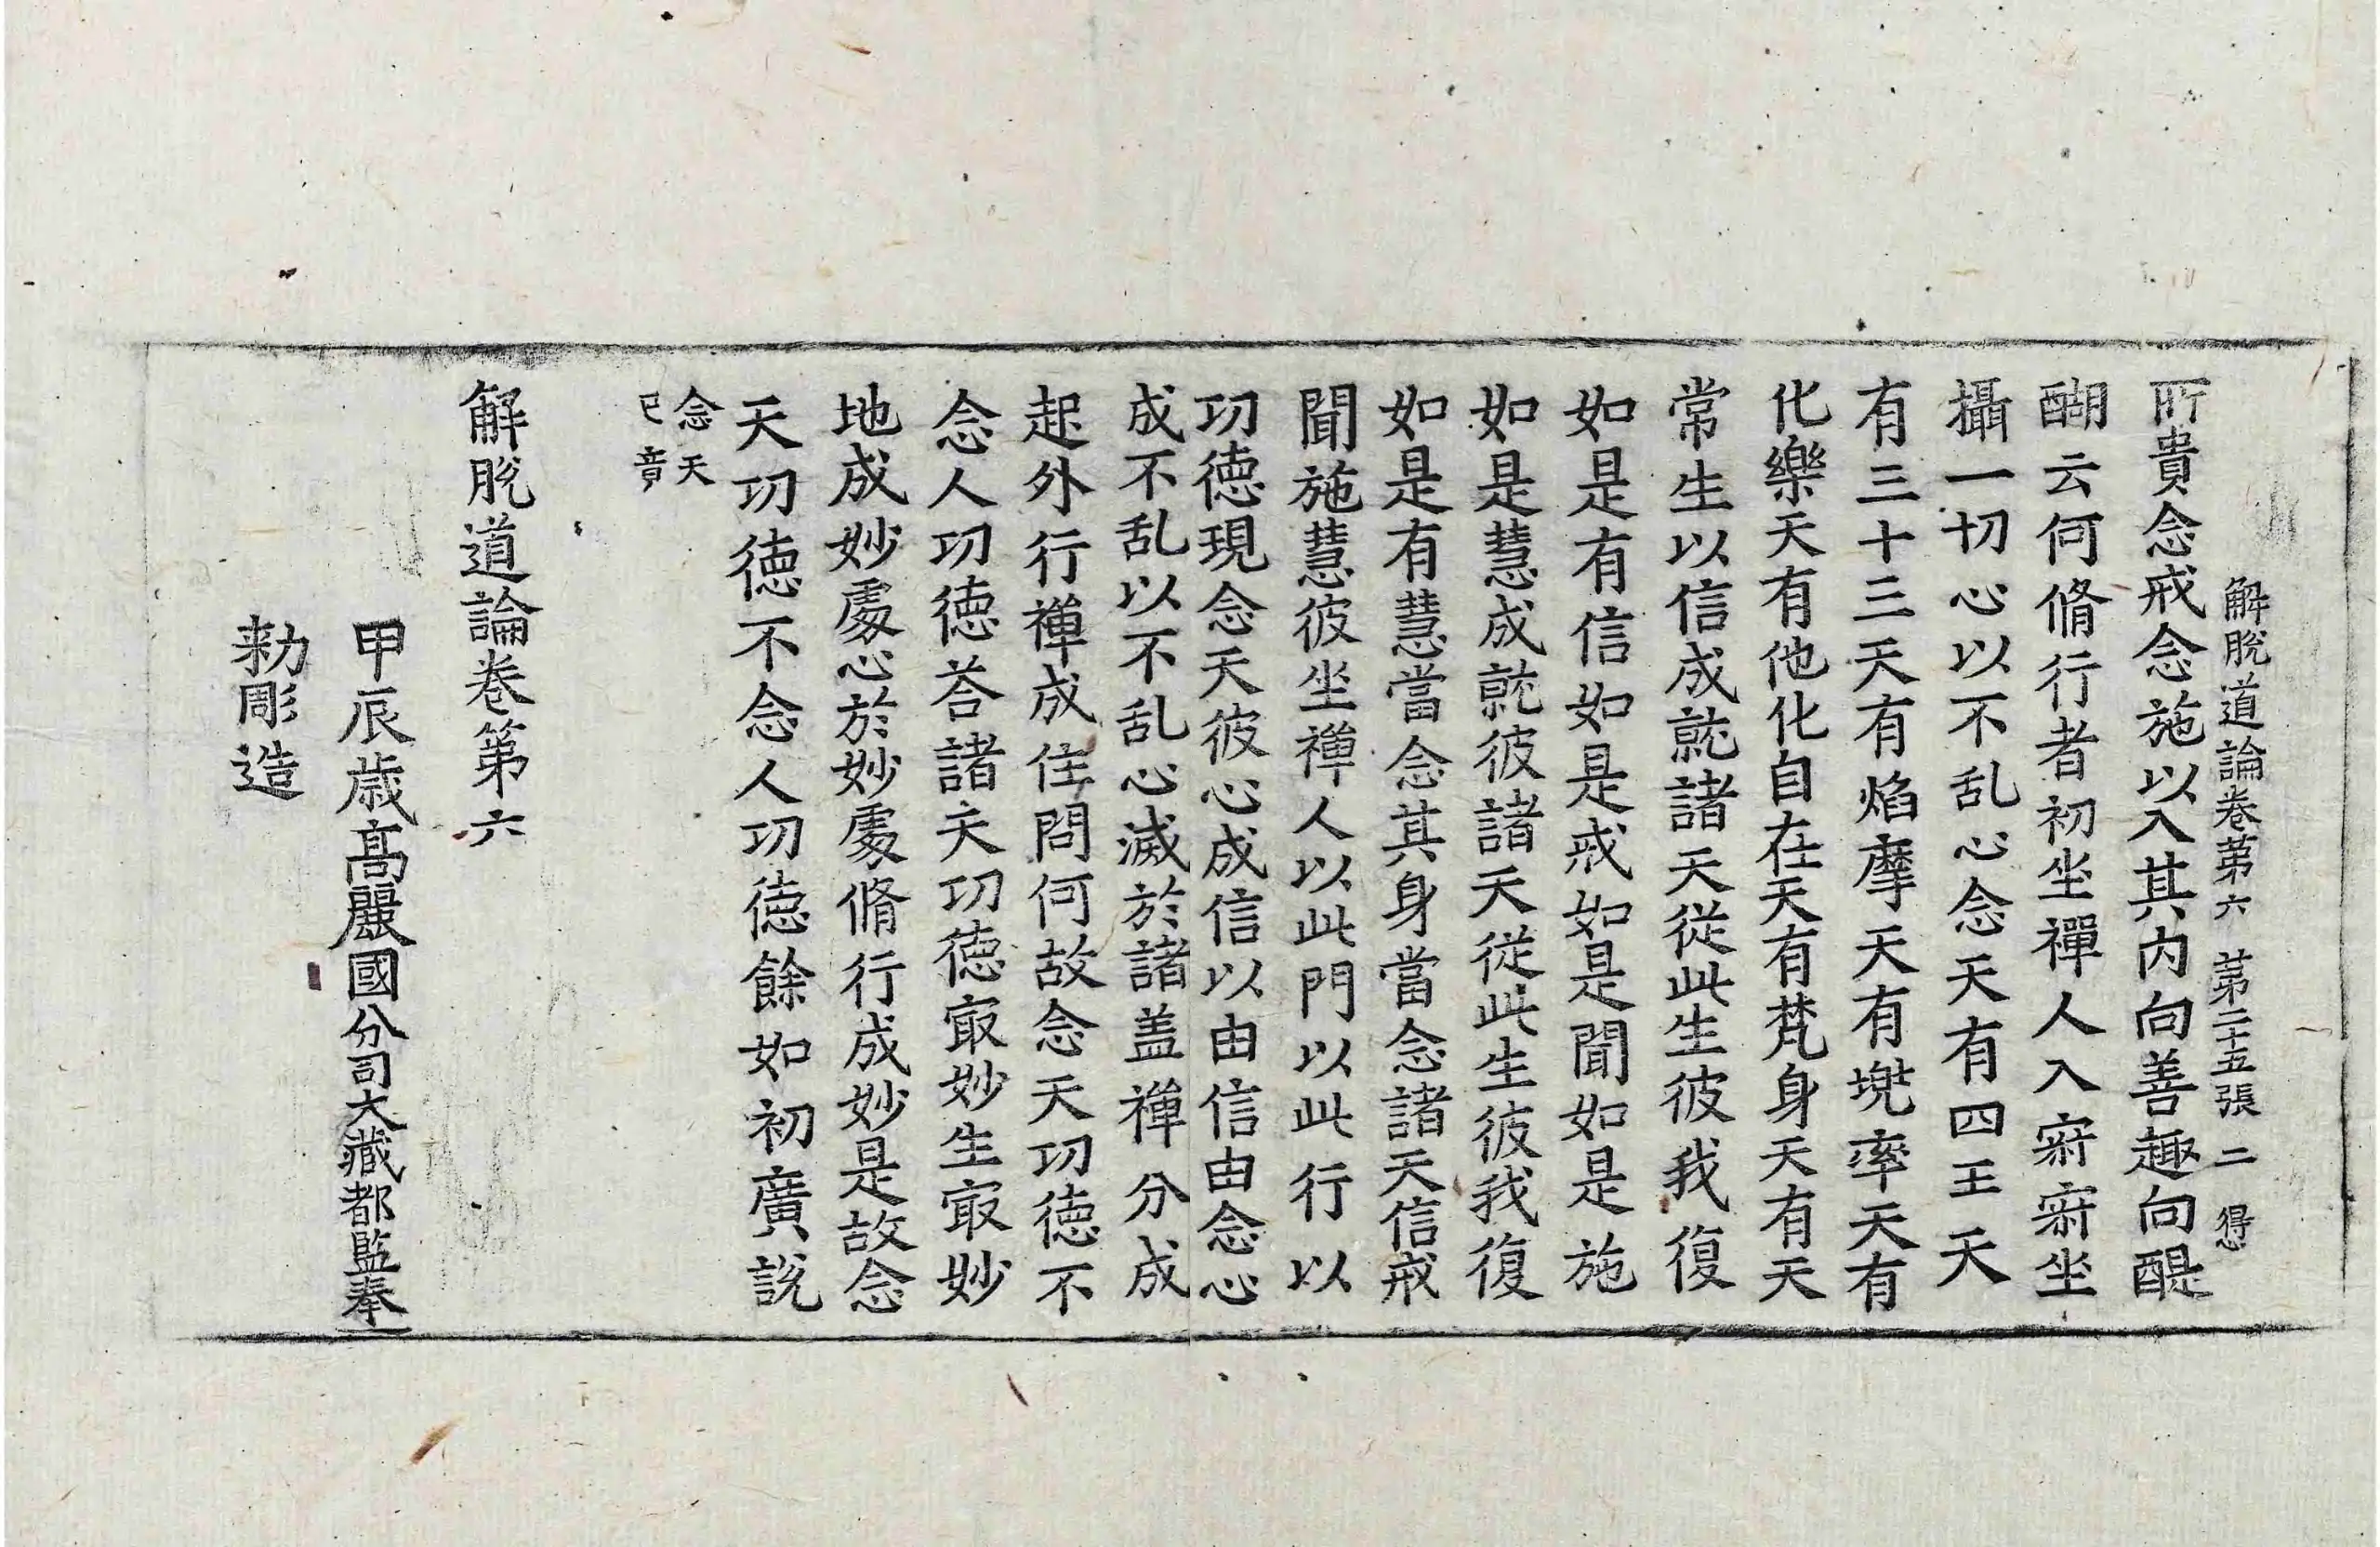 解脫道論卷第六　第二十五張　二　得
所貴念戒念施以入其內向善趣向醍
醐云何脩行者初坐禪人入寂寂坐
攝一切心以不乱心念天有四王天
有三十三天有焰摩天有兠率天有
化樂天有他化自在天有梵身天有天
常生以信成就諸天從此生彼我復
如是有信如是戒如是聞如是施
如是慧成就彼諸天從此生彼我復
如是有慧當念其身當念諸天信戒
聞施慧彼坐禪人以此門以此行以
功德現念天彼心成信以由信由念心
成不乱以不乱心滅於諸盖禪分成
起外行禪成住問何故念天功德不
念人功德荅諸天功德㝡妙生㝡妙
地成妙處心於妙處脩行成妙是故念
天功德不念人功德餘如初廣說
念天
已竟
解脫道論卷第六
甲辰歲髙麗國分司大藏都監奉
勑彫造